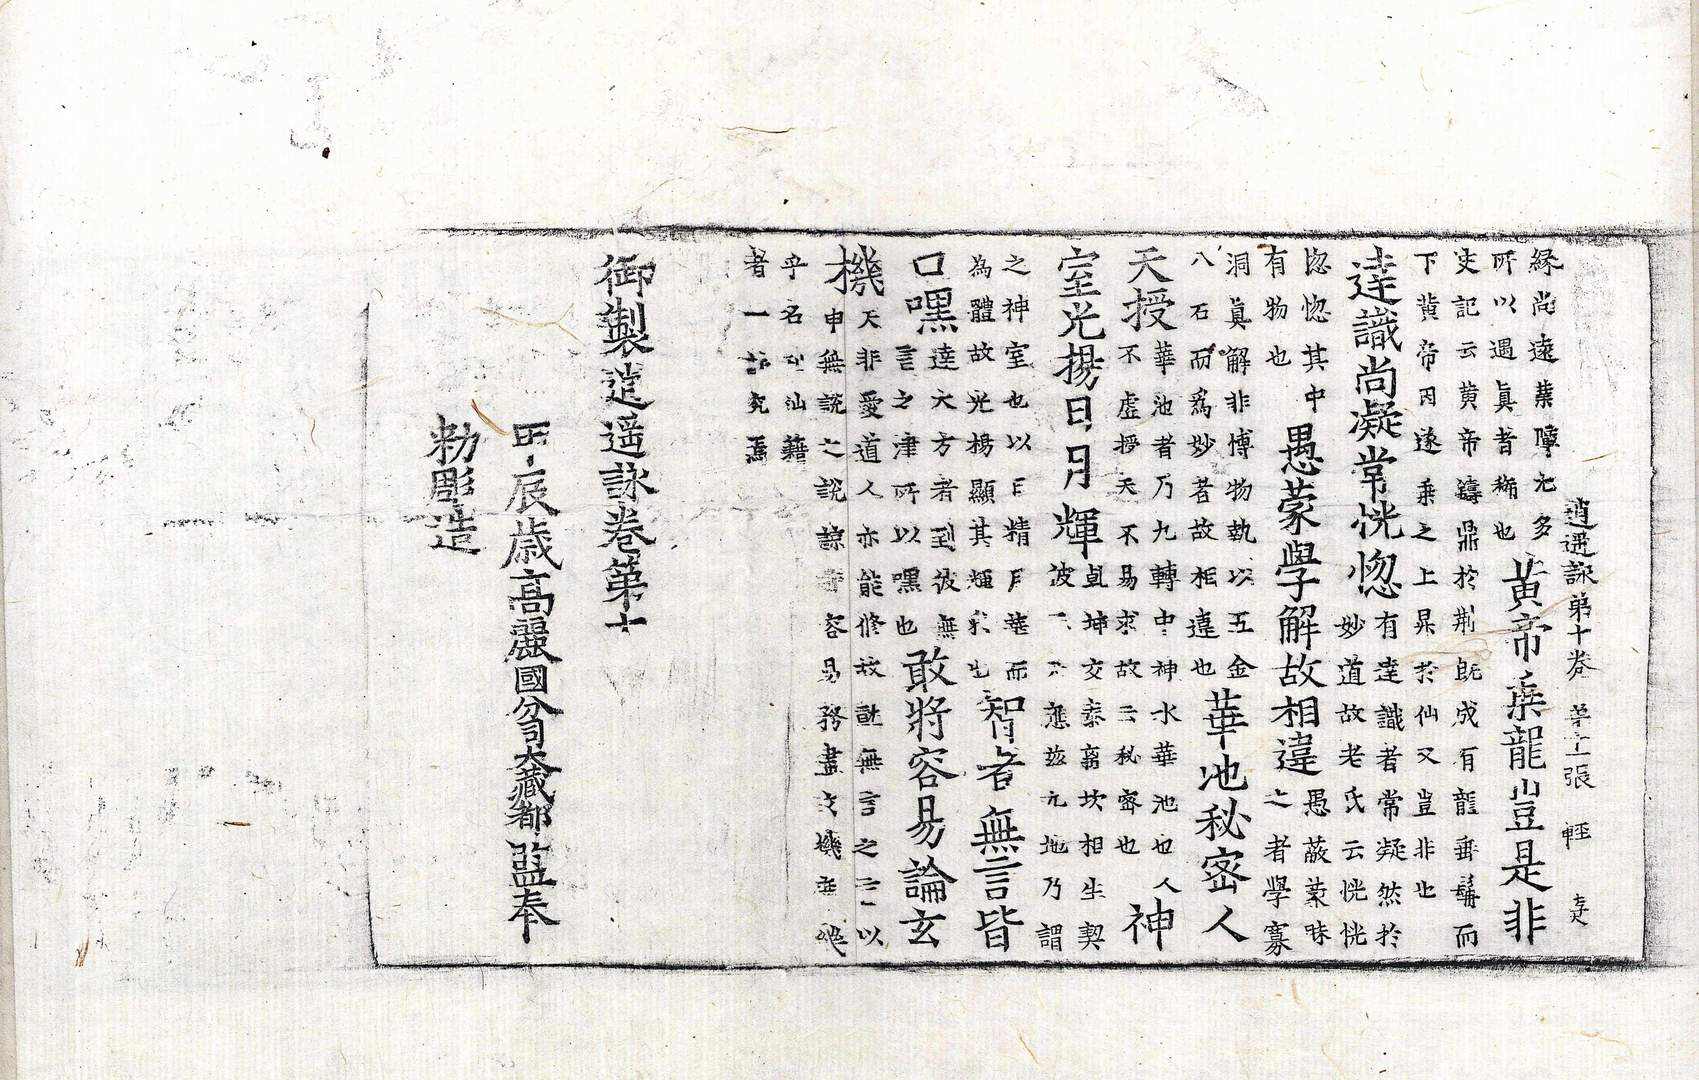 逍遥詠第十卷 第十二張 輕
緣尚遠業障尤多
所以遇眞者稀也
黃帝乗龍豈是非
史記云黄帝鑄鼎於荆既成有龍垂髯而
下黄帝因遂乗之上昇於仙又豈非也
達識尚凝常恍惚
有達識者常凝然於
妙道故老氏云恍恍
惚惚其中
有物也
愚蒙學解故相違
愚蔽蒙昧
之者學寡
洞眞解非博物執以五金
八石而爲妙者故相違也
華池秘密人
天授
華池者乃九轉中神水華池也人
不虛授天不易求故云秘密也
神
室光揚日月輝
坤交泰离坎相生契
應兹元地乃謂
之神室也以日精月華而
為體故光揚顯其輝彩也
智者無言皆
口嘿
達大方者到彼無
言之津所以嘿也
敢將容易論玄
機
天非愛道人亦能修故註無言之言以
申無說之說諒容易務盡文機
乎名仙籍
者一究焉
御製逍遥詠卷第十
甲辰歳高麗國分司大藏都監奉
勑彫造